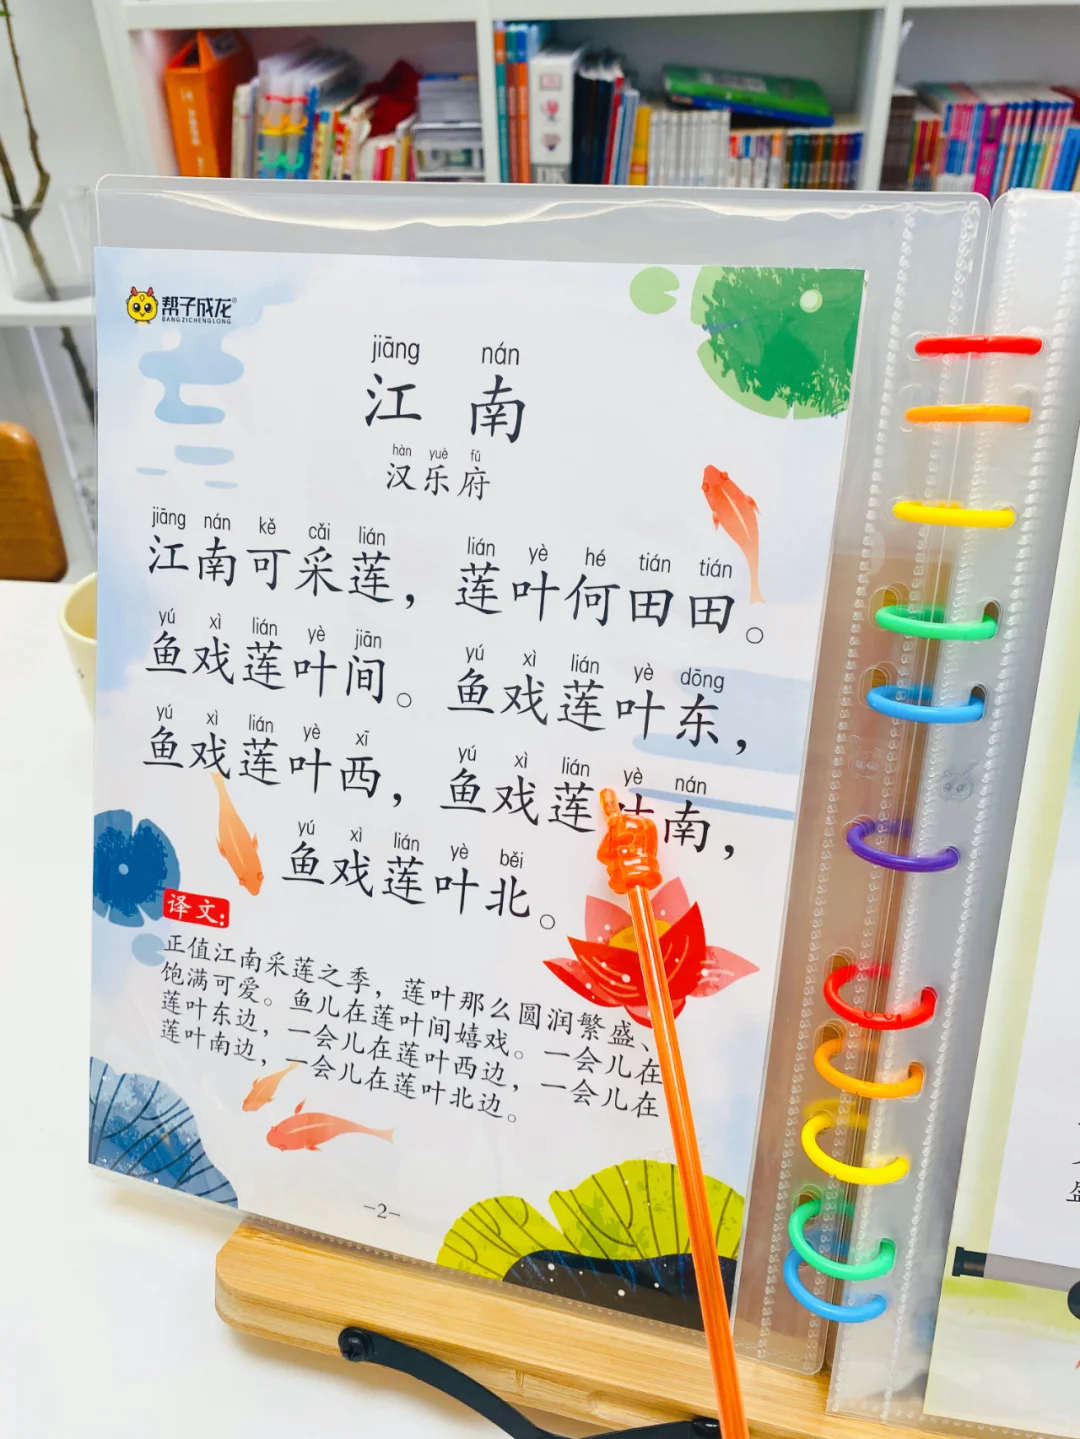 帮子成龙
BANGZICHENGLONG
jiāng nán
江南
hàn yuè fǔ
汉乐府
jiāng nán kě cǎi lián lián yè hé tián tián
江南可采莲，莲叶何田田。
yú xì lián yè jiān yú xì lián yè dōng
鱼戏莲叶间。鱼戏莲叶东，
yú xì lián yè xī yú xì lián yè nán
鱼戏莲叶西，鱼戏莲叶南，
yú xì lián yè běi
鱼戏莲叶北。
译文:
正值江南采莲之季，莲叶那么圆润繁盛、
饱满可爱。鱼儿在莲叶间嬉戏。一会儿在
莲叶东边，一会儿在莲叶西边，一会儿在
莲叶南边，一会儿在莲叶北边。
-2-
DK